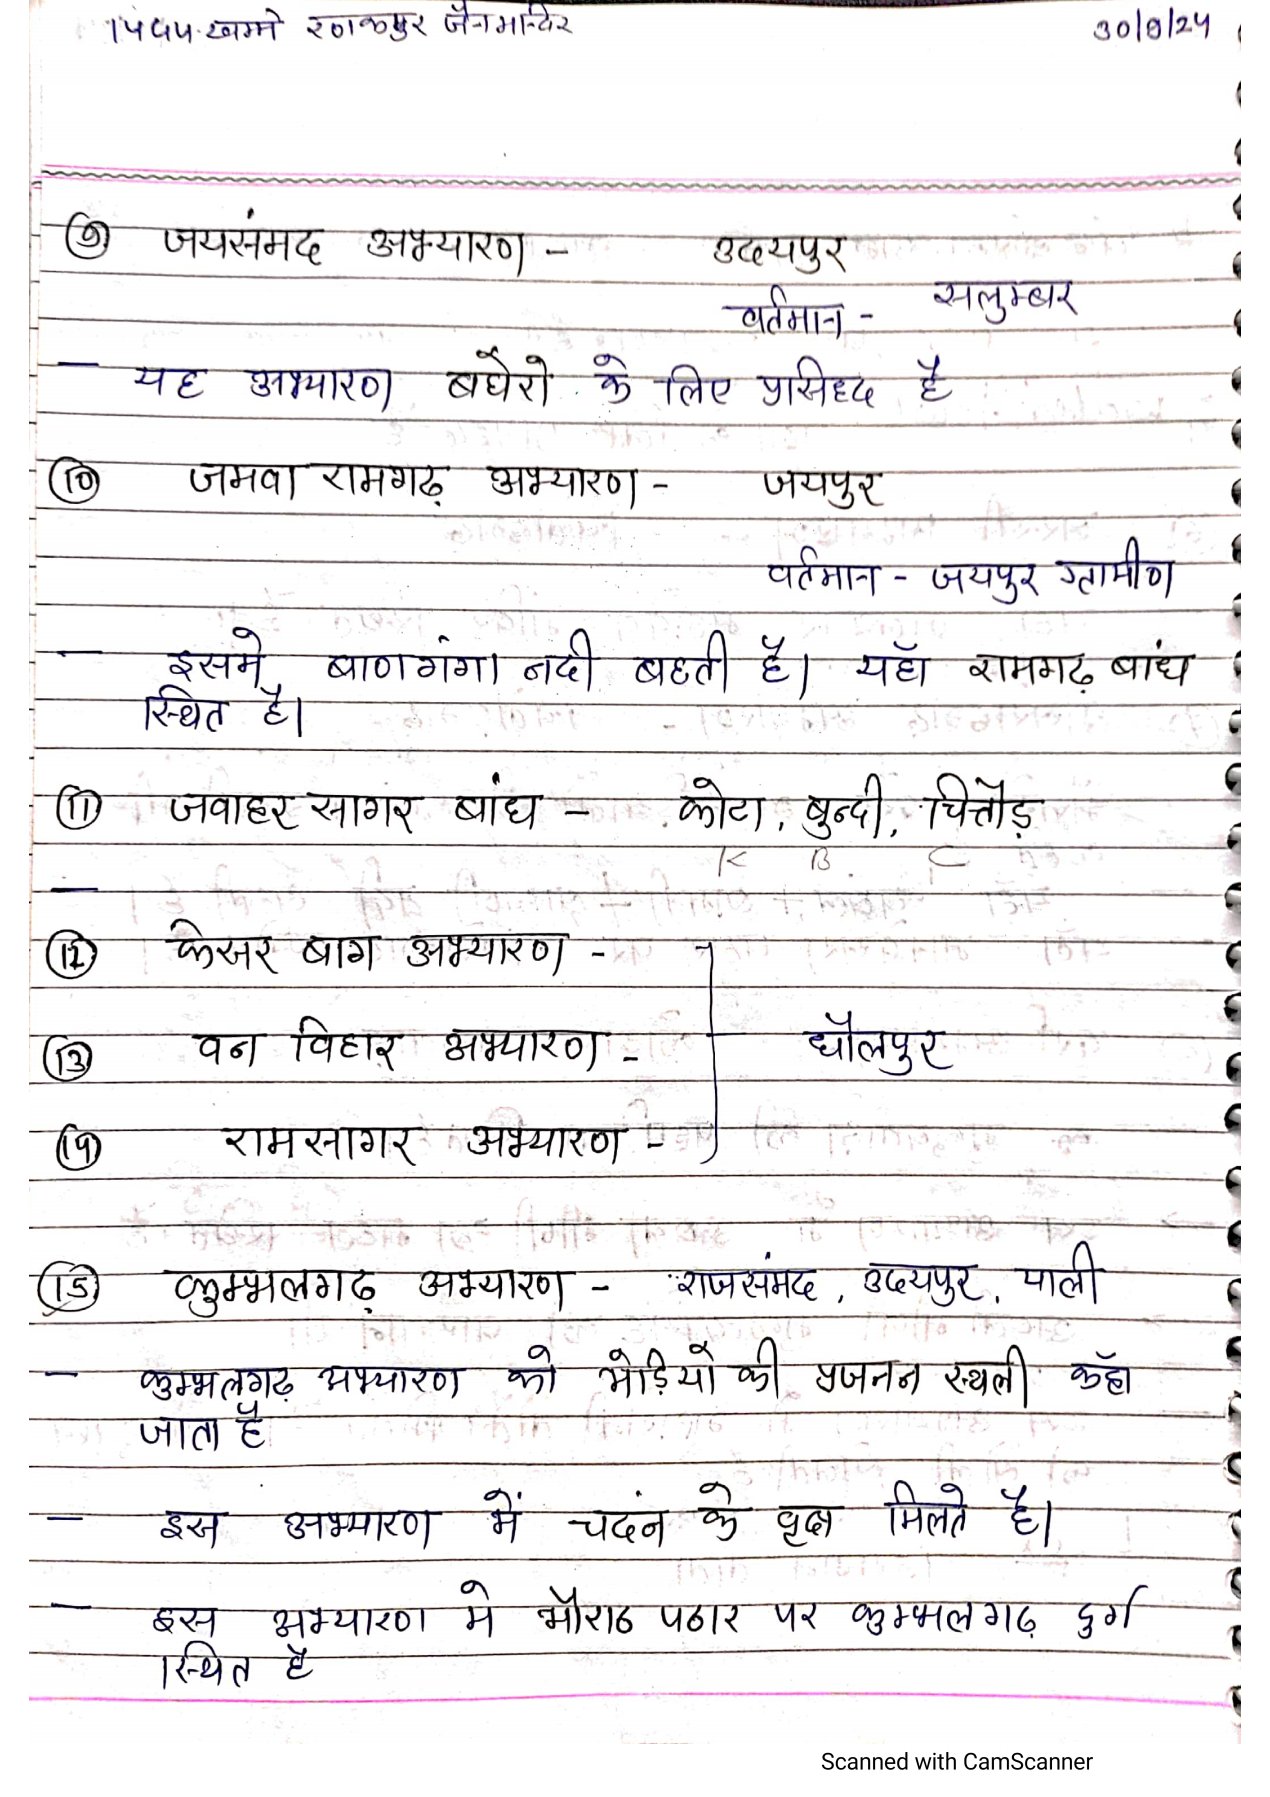 1444 खम्भे रणकपुर जैन मन्दिर 30/8/24
9 जयसंमद अभ्यारण - उदयपुर
वर्तमान - सलुम्बर
- यह अभ्यारण बघेरो के लिए प्रसिद्द है
10 जमवा रामगढ़ अभ्यारण - जयपुर
वर्तमान - जयपुर ग्रामीण
- इसमे बाणगंगा नदी बहती है। यहाँ रामगढ़ बांध
स्थित है।
11 जवाहर सागर बांध - कोटा, बुन्दी, चित्तौड़
K B C
-
12 केसर बाग अभ्यारण -
13 वन विहार अभ्यारण - धौलपुर
14 रामसागर अभ्यारण -
15 कुम्भलगढ़ अभ्यारण - राजसंमद, उदयपुर, पाली
- कुम्भलगढ़ अभ्यारण को भेड़ियों की प्रजनन स्थली कहाँ
जाता है
- इस अभ्यारण में चदंन के वृक्ष मिलते है।
- इस अभ्यारण मे भौराठ पठार पर कुम्भलगढ़ दुर्ग
स्थित है
Scanned with CamScanner